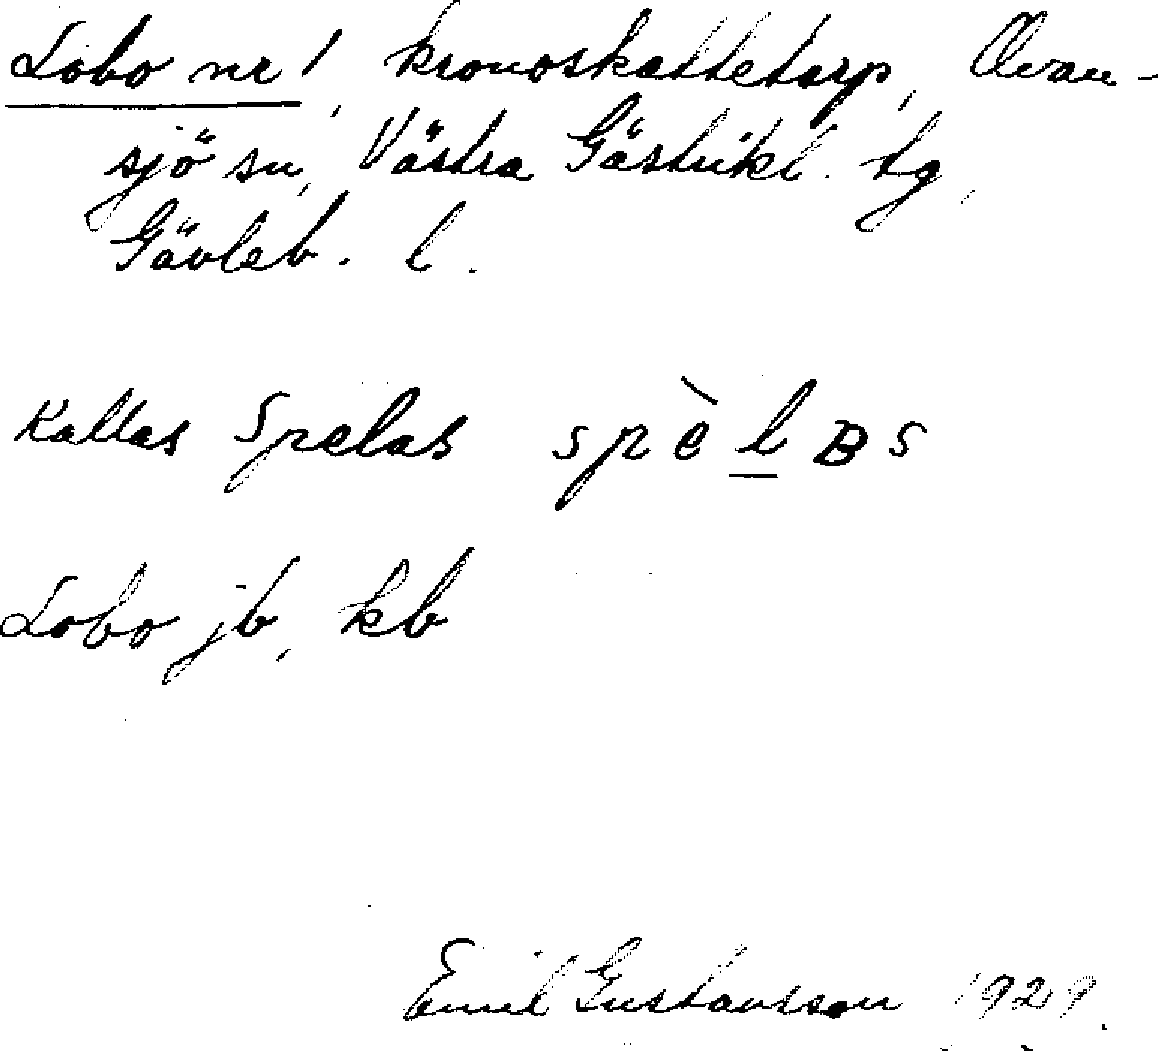 Lobo nr 1, kronoskattetorp, Ovan-
sjö sn, Västra Gästrikl. tg,
Gävleb. l.
Kallas Spelas spèlʙs
Lobo jb, kb
Emil Gustavsson 1929.